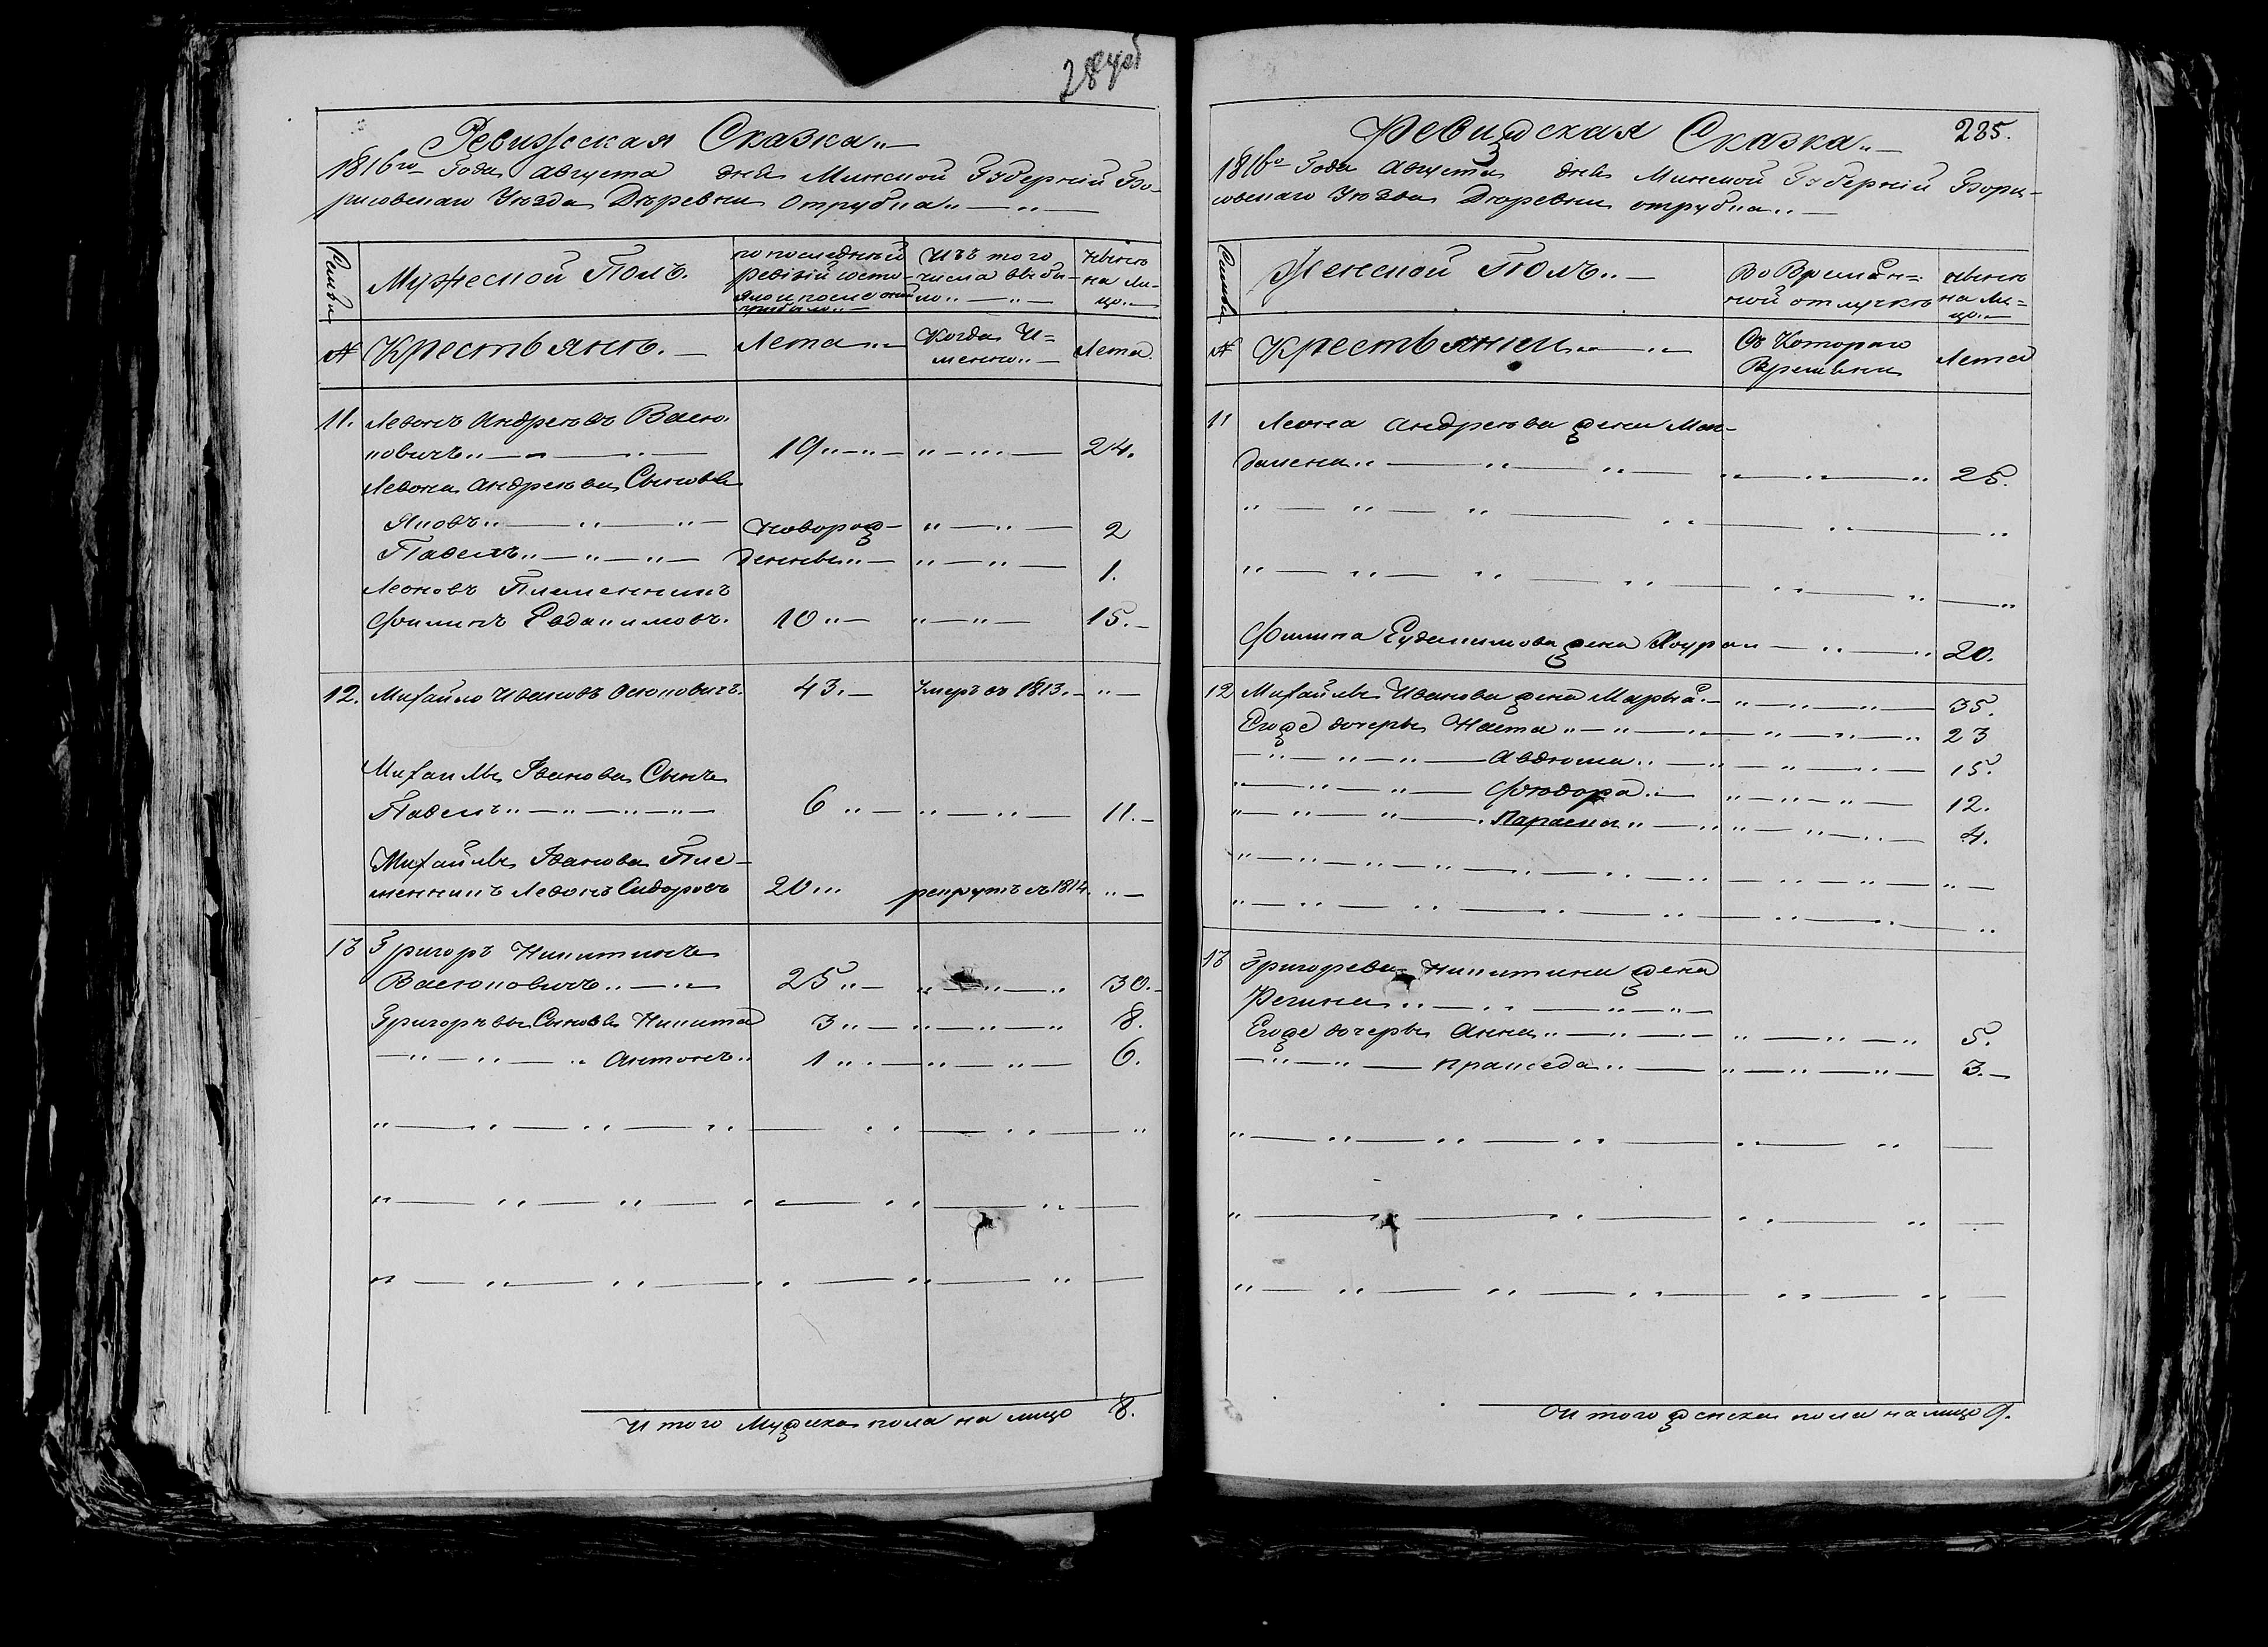 Ревизская Сказка
1816го Года Августа дня Минской Губерній Бо-
рисовскаго Уѣзда Дѣревни Отрубка
Семьи
Мужеской Полъ.
по последней
ревизій состо-
яло и после оной
прибыло
Изъ того
числа выбы-
ло
ныне
на ли-
цо
№
Крестьянъ.
Лета
Когда И-
менно
Лета.
11. Левонъ Андреювъ Васю-
ковичъ 19 24.
Левона Андреюва Сыновья
Яковъ новорож- 2
Павелъ денныи 1.
Леоновъ Племенникъ
Филипъ Евдакимовъ. 10 15.
12. Михайло Ивановъ Осюковичъ. 43. Умеръ въ 1813.
Михайлы Іванова Сынъ
Павелъ 6 11.
Михайлы Іванова Пле-
менникъ Левонъ Сидоровъ 20 рекрутъ съ 1814.
13 Григоръ Никитинъ
Васюковичъ 25 30.
Григоръвы Сыновья Никита 3 8.
Антонъ 1 6.
Итого Мужска пола на лицо 8.
Ревизская Сказка
285.
1816го Года Августа дня Минской Губерній Бори-
совскаго Уѣзда Дѣревни отрубка
Семьи
Женской Полъ
Во Времян-
ной отлучкѣ
ныне
на Ли-
цо
№
Крестьянки
Съ Котораго
Времени
Лета
11 Леона Андреюва жена Маг-
далена 25.
Филипа Еудакимова жена Агурая 20.
12 Михайлы Иванова жена Марья 35.
Егоже дочеры Наста 23
Авдюша 15.
Фюдора 12.
Параска 4.
13 Григорева Никитина жена
Регина
Егоже дочеры Анна 5.
Праксeда 3.
Итого женска пола на лицо 9.